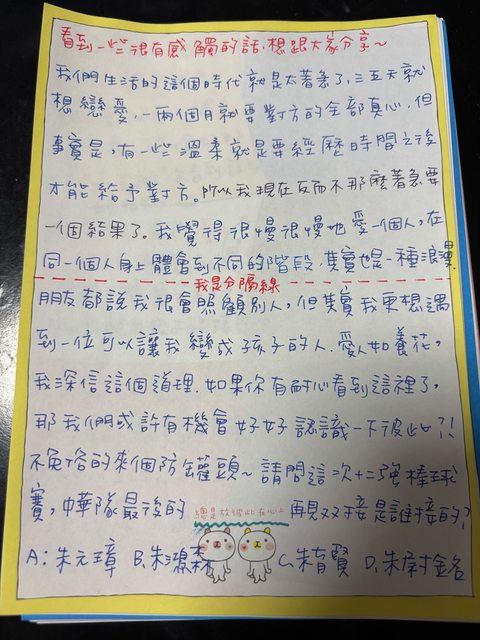 看到一些很有感觸的話,想跟大家分享~
我們生活的這個時代就是太著急了,三五天就
想戀愛,一兩個月就要對方的全部真心,但
事實是,有一些溫柔就是要經歷時間之後
才能給予對方。所以我現在反而不那麼著急要
一個結果了。我覺得很慢很慢地愛一個人,在
同一個人身上體會到不同的階段,其實也是一種浪漫。
我是分隔線
朋友都說我很會照顧別人,但其實我更想遇
到一位可以讓我變成孩子的人.愛人如養花,
我深信這個道理.如果你有耐心看到這裡了,
那我們或許有機會好好認識一下彼此?!
不免俗的來個防罐頭~請問這次十二強棒球
賽,中華隊最後的 再見双殺是誰接的?
總是放彼此在心上
A:朱元璋 B.朱鴻森 C.朱育賢 D.朱